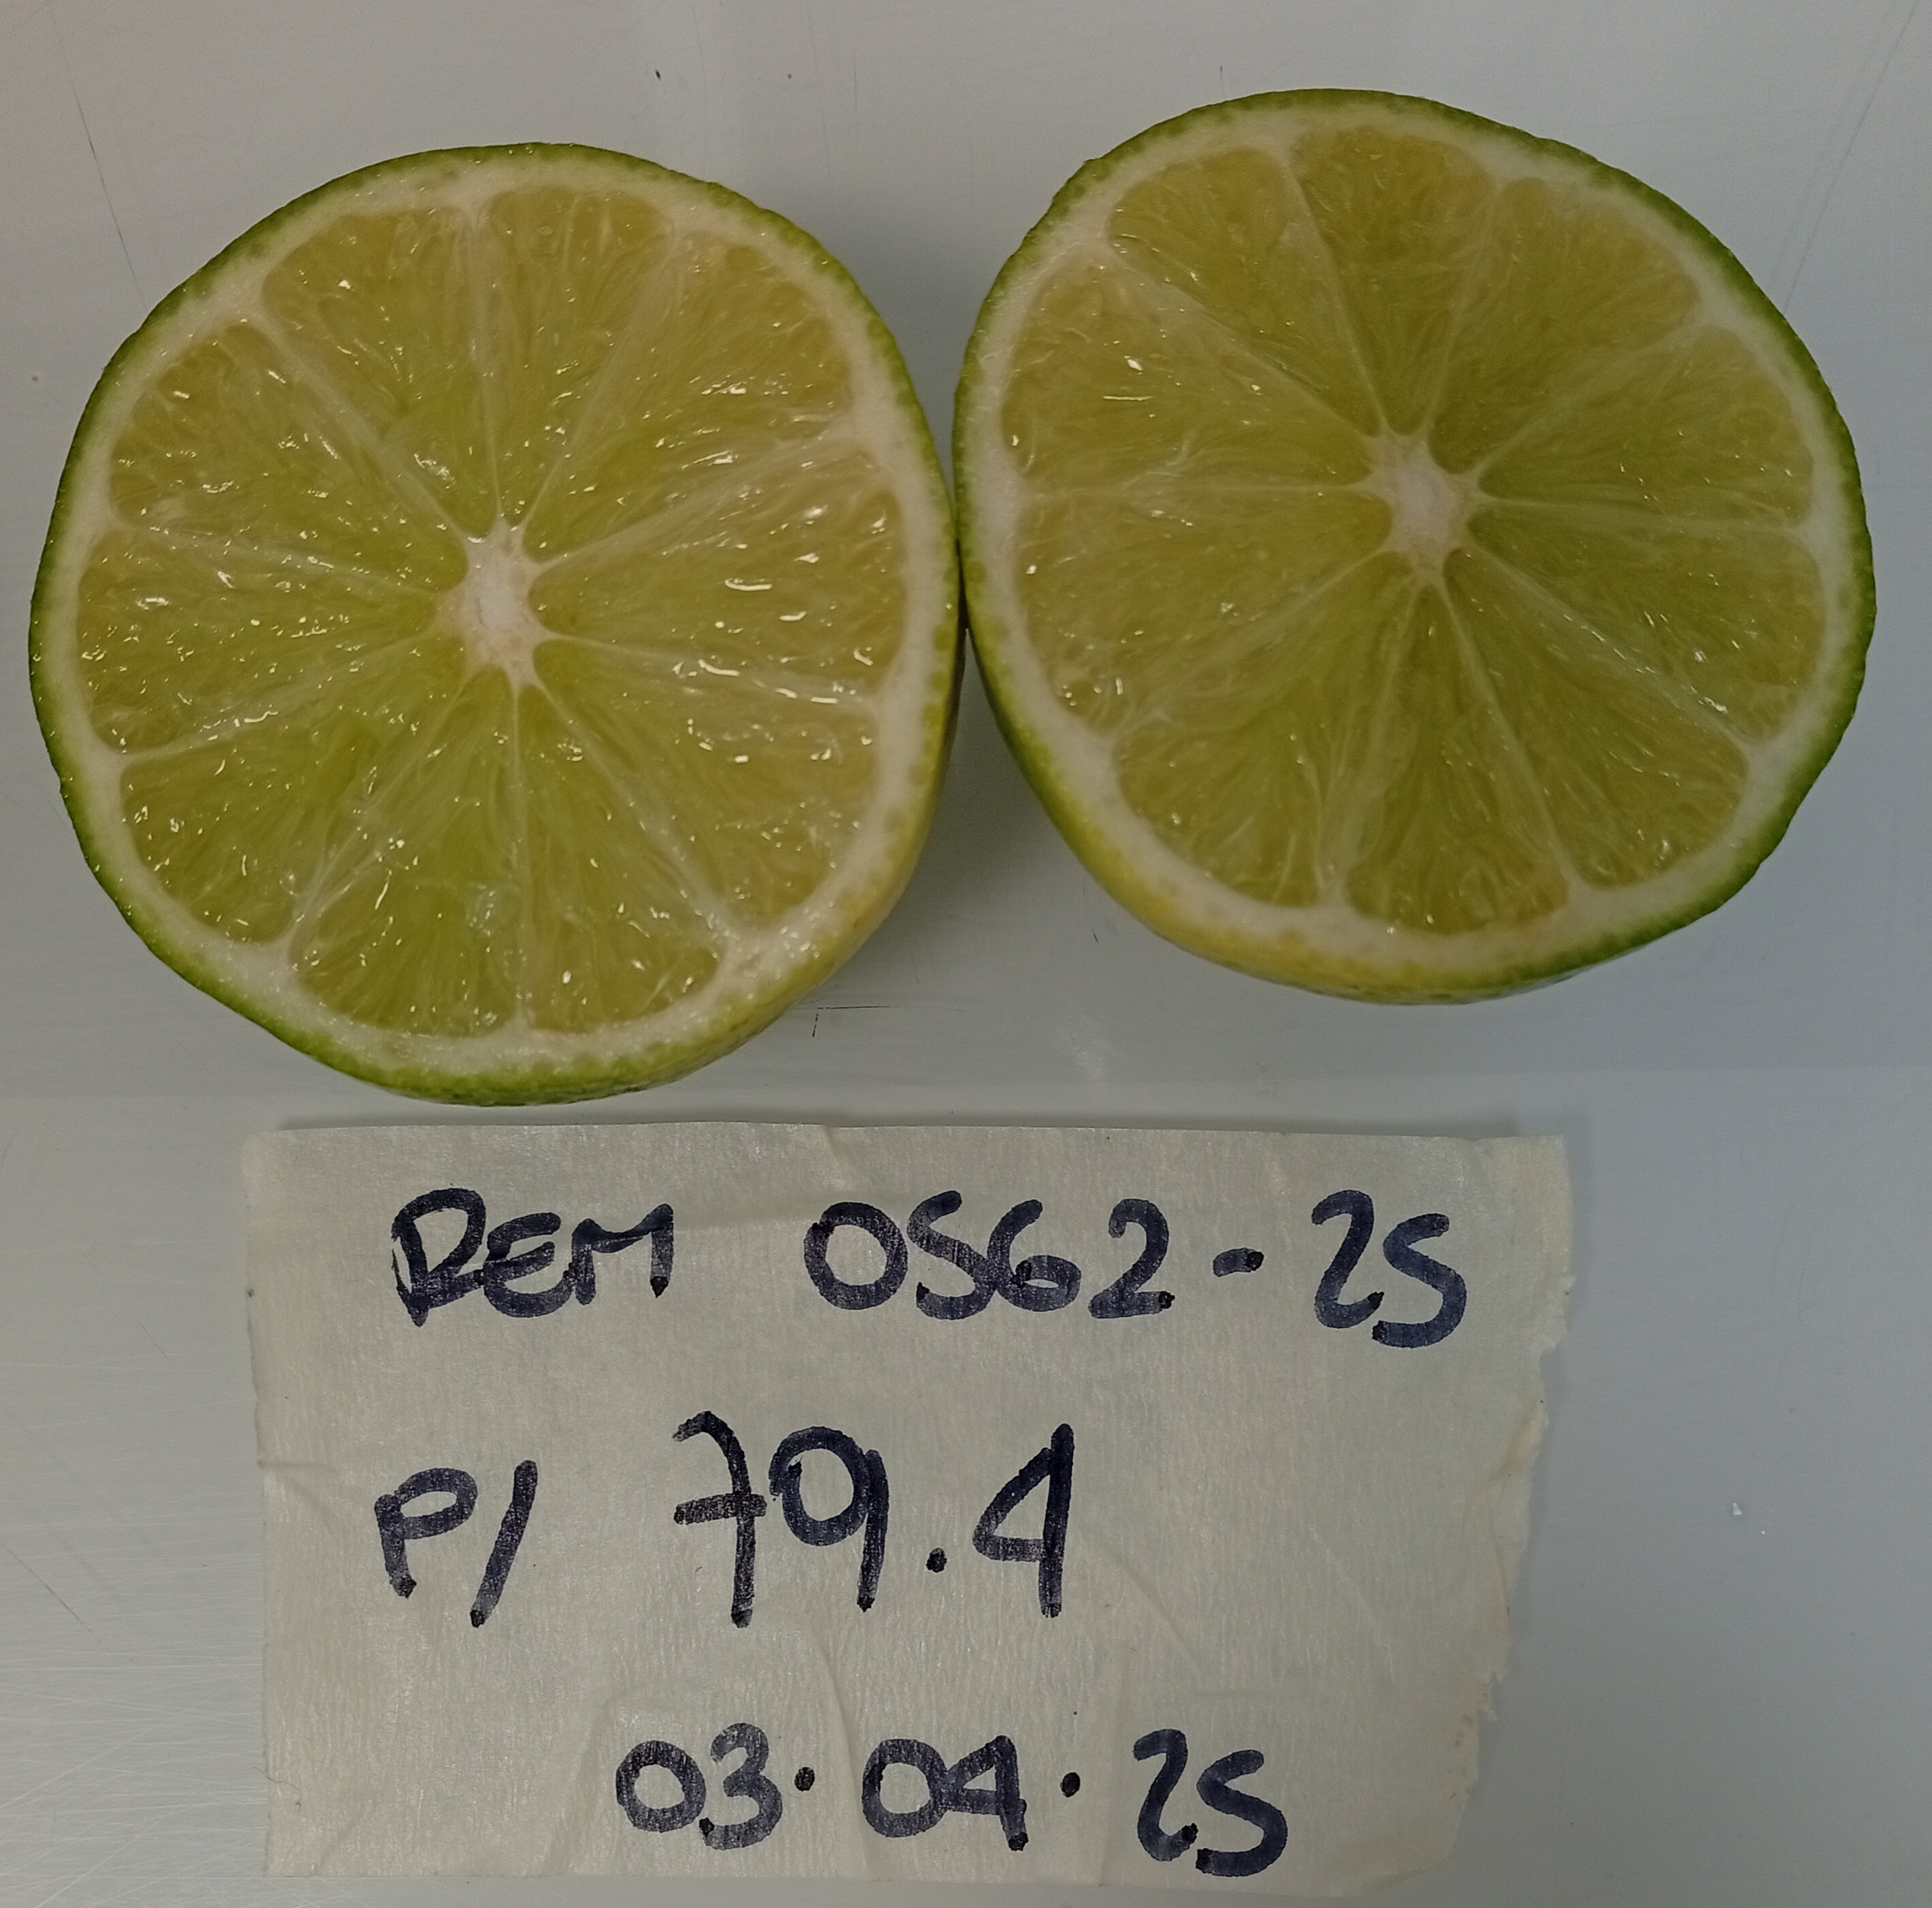 REM 0562-25
P/ 79.4
03.04.25